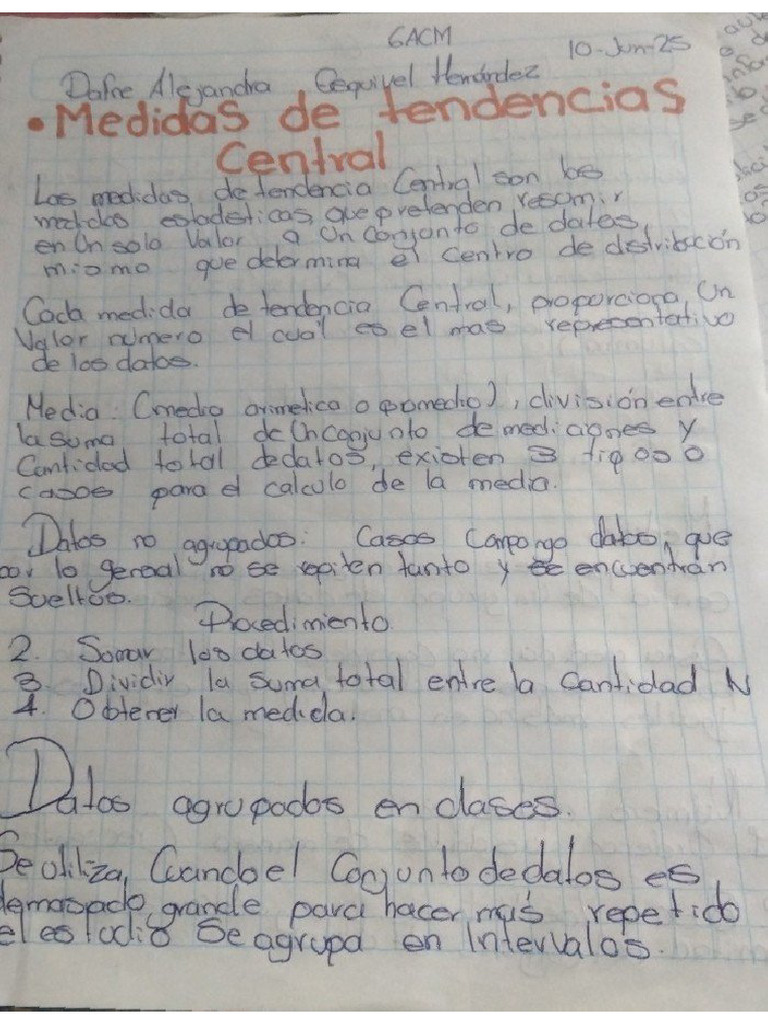 6ACM
10-Jun-25
Dafne Alejandra Esquivel Hernández
• Medidas de tendencias
Central
Las medidas de tendencia Central son las
medidas estadísticas que pretenden resumir
en Un solo Valor a Un conjunto de datos,
mismo que determina el centro de distribución
Cada medida de tendencia Central, proporciona Un
Valor número el cual es el mas representativo
de los datos.
Media: (media arimetica o promedio), división entre
la suma total de Un conjunto de mediciones y
Cantidad total de datos, existen 3 tipos o
casos para el calculo de la media.
Datos no agrupados: Casos Compongo datos, que
por lo geneal no se repiten tanto y se encuentran
Sueltos.
Procedimiento
2. Sumar los datos
3. Dividir la suma total entre la Cantidad N
4. Obtener la medida.
Datos agrupados en clases.
Se utiliza, Cuando el Conjunto de datos es
demasiado grande para hacer más repetido
el estudio Se agrupa en Intervalos.